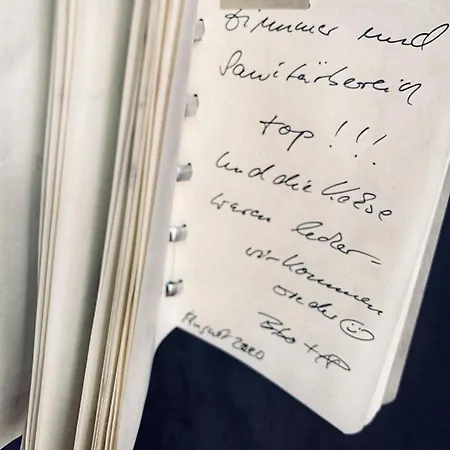 Zimmer und
Sanitärberein
top!!!
Und die Kekse
waren lecker =
wir kommen
wieder ☺
August 2020